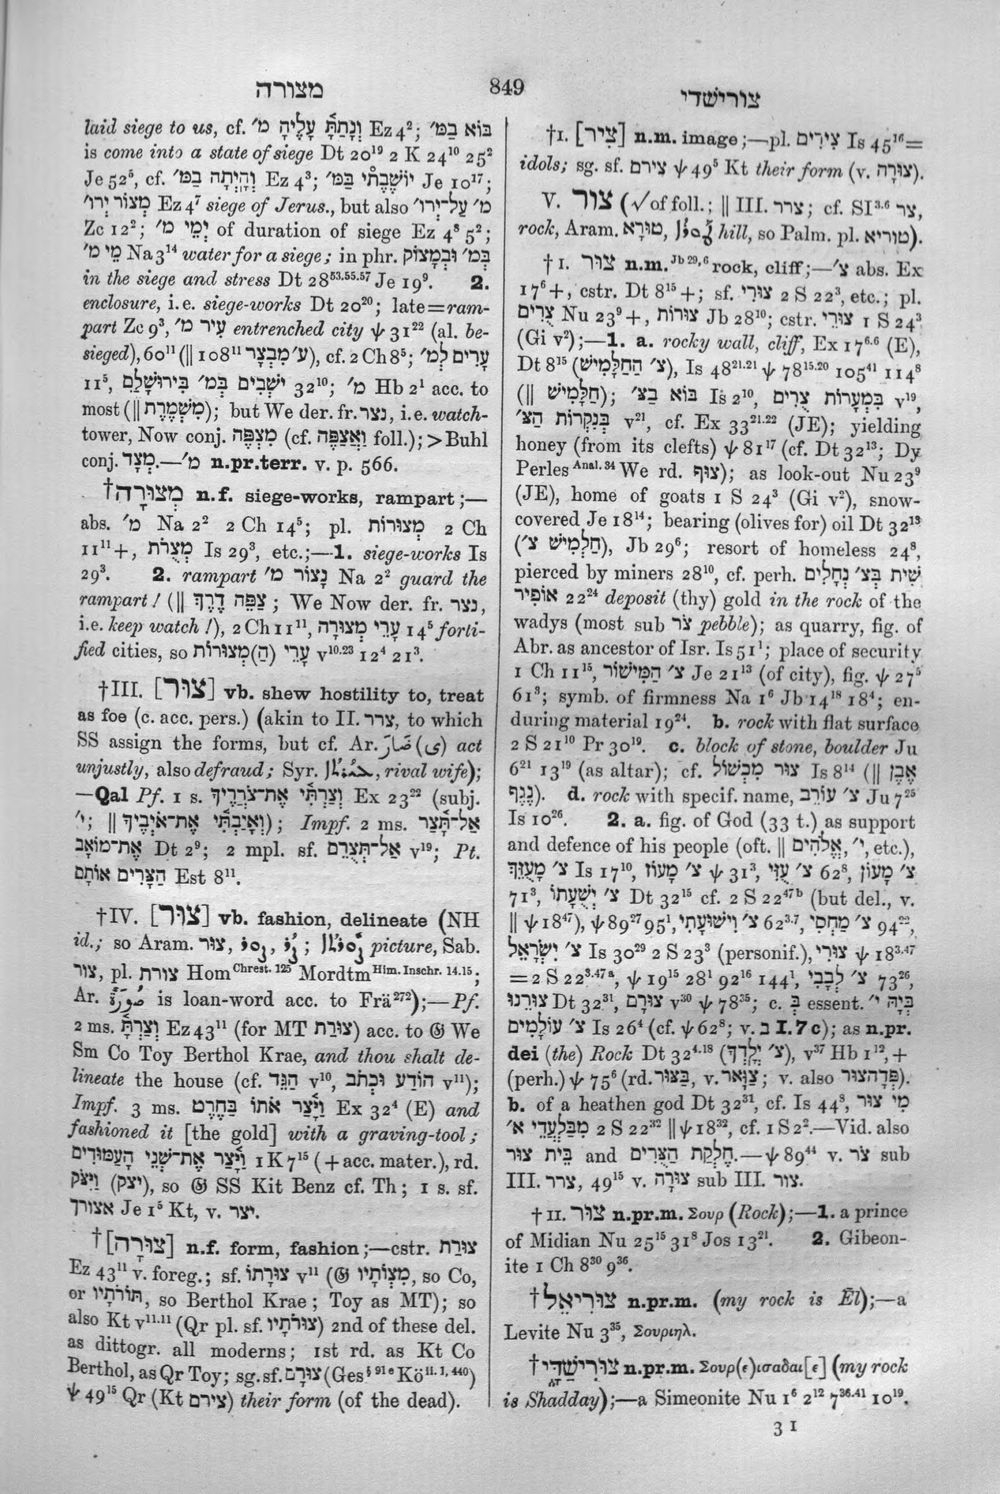 מצורה
849
צורישדי
laid siege to us, cf. וְנָתַתָּ עָלֶיהָ מ׳ Ez 4²; בוֹא בַמּ׳
is come into a state of siege Dt 20¹⁹ 2 K 24¹⁰ 25²
Je 52⁵, cf. וְהָיְתָה בַמּ׳ Ez 4³; יוֹשֶׁבֶת בַּמּ׳ Je 10¹⁷;
מְצוֹר יְרוּ׳ Ez 4⁷ siege of Jerus., but also מ׳ עַל־יְר׳
Zc 12²; יְמֵי מ׳ of duration of siege Ez 4⁸ 5²;
מֵי מ׳ Na 3¹⁴ water for a siege; in phr. בְּמ׳ וּבְמָצוֹק
in the siege and stress Dt 28⁵³·⁵⁵·⁵⁷ Je 19⁹. 2.
enclosure, i.e. siege-works Dt 20²⁰; late=ram-
part Zc 9³, עִיר מ׳ entrenched city ψ 31²² (al. be-
sieged), 60¹¹ (‖ 108¹¹ ע׳ מִבְצָר), cf. 2 Ch 8⁵; עָרִים לְמ׳
11⁵, יֹשְׁבִים בְּמ׳ בִּירוּשָׁלַ‍ם 32¹⁰; מ׳ Hb 2¹ acc. to
most (‖ מִשְׁמֶרֶת); but We der. fr. נצר, i.e. watch-
tower, Now conj. מִצְפֶּה (cf. וַאֲצַפֶּה foll.); > Buhl
conj. מְצָד.—מ׳ n.pr.terr. v. p. 566.
†מְצוּרָה n.f. siege-works, rampart;—
abs. מ׳ Na 2² 2 Ch 14⁵; pl. מְצוּרוֹת 2 Ch
11¹¹+, מְצֻרֹת Is 29³, etc.;—1. siege-works Is
29³. 2. rampart נָצוֹר מ׳ Na 2² guard the
rampart! (‖ צַפֵּה דֶרֶךְ; We Now der. fr. נצר,
i.e. keep watch!), 2 Ch 11¹¹, עָרֵי מְצוּרָה 14⁵ forti-
fied cities, so עָרֵי (הַ)מְּצוּרוֹת v¹⁰·²³ 12⁴ 21³.
†III. [צוּר] vb. shew hostility to, treat
as foe (c. acc. pers.) (akin to II. צרר, to which
SS assign the forms, but cf. Ar. ضَارَ (ى) act
unjustly, also defraud; Syr. rival wife);
—Qal Pf. 1 s. וְצַרְתִּי אֶת־צֹרְרֶיךָ Ex 23²² (subj.
י׳; ‖ וְאָיַבְתִּי אֶת־אֹיְבֶיךָ); Impf. 2 ms. אַל־תָּצַר
אֶת־מוֹאָב Dt 2⁹; 2 mpl. sf. אַל־תְּצֻרֵם v¹⁹; Pt.
הַצָּרִים אוֹתָם Est 8¹¹.
†IV. [צוּר] vb. fashion, delineate (NH
id.; so Aram. צוּר, picture, Sab.
צור, pl. צורת Hom Chrest. 125 Mordtm Him. Inschr. 14.15;
Ar. صُورَةٌ is loan-word acc. to Frä²⁷²);—Pf.
2 ms. וְצַרְתָּ Ez 43¹¹ (for MT צוּרַת) acc. to 𝔊 We
Sm Co Toy Berthol Krae, and thou shalt de-
lineate the house (cf. הַגֵּד v¹⁰, הוֹדַע וּכְתֹב v¹¹);
Impf. 3 ms. וַיָּצַר אֹתוֹ בַּחֶרֶט Ex 32⁴ (E) and
fashioned it [the gold] with a graving-tool;
וַיָּצַר אֶת־שְׁנֵי הָעַמּוּדִים 1 K 7¹⁵ (+ acc. mater.), rd.
וַיִּצֹק (יצק), so 𝔊 SS Kit Benz cf. Th; 1 s. sf.
אצורך Je 1⁵ Kt, v. יצר.
†[צוּרָה] n.f. form, fashion;—cstr. צוּרַת
Ez 43¹¹ v. foreg.; sf. צוּרָתוֹ v¹¹ (𝔊 מִצְוֹתָיו, so Co,
or תּוֹרֹתָיו, so Berthol Krae; Toy as MT); so
also Kt v¹¹·¹¹ (Qr pl. sf. צוּרֹתָיו) 2nd of these del.
as dittogr. all moderns; 1st rd. as Kt Co
Berthol, as Qr Toy; sg. sf. צוּרָם (Ges § 91 e Kö ii. 1, 440)
ψ 49¹⁵ Qr (Kt צירם) their form (of the dead).
†I. [צִיר] n.m. image;—pl. צִירִים Is 45¹⁶=
idols; sg. sf. צירם ψ 49⁵ Kt their form (v. צוּרָה).
V. צור (√ of foll.; ‖ III. צרר; cf. SI³·⁶ צר,
rock, Aram. טוּרָא, hill, so Palm. pl. טוריא).
†I. צוּר n.m. Jb 29, 6 rock, cliff;—צ׳ abs. Ex
17⁶+, cstr. Dt 8¹⁵+; sf. צוּרִי 2 S 22³, etc.; pl.
צֻרִים Nu 23⁹+, צוּרוֹת Jb 28¹⁰; cstr. צוּרֵי 1 S 24³
(Gi v²);—1. a. rocky wall, cliff, Ex 17⁶·⁶ (E),
Dt 8¹⁵ (צ׳ הַחַלָּמִישׁ), Is 48²¹·²¹ ψ 78¹⁵·²⁰ 105⁴¹ 114⁸
(‖ חַלָּמִישׁ); בוֹא בַצּ׳ Is 2¹⁰, בִּמְעָרוֹת צֻרִים v¹⁹,
בְּנִקְרוֹת הַצּ׳ v²¹, cf. Ex 33²¹·²² (JE); yielding
honey (from its clefts) ψ 81¹⁷ (cf. Dt 32¹³; Dy
Perles Anal. 34 We rd. צוּף); as look-out Nu 23⁹
(JE), home of goats 1 S 24³ (Gi v²), snow-
covered Je 18¹⁴; bearing (olives for) oil Dt 32¹³
(חַלְמִישׁ צ׳), Jb 29⁶; resort of homeless 24⁸,
pierced by miners 28¹⁰, cf. perh. שִׁית בְּצ׳ נְחָלִים
אוֹפִיר 22²⁴ deposit (thy) gold in the rock of the
wadys (most sub צֹר pebble); as quarry, fig. of
Abr. as ancestor of Isr. Is 51¹; place of security
1 Ch 11¹⁵, צ׳ הַמִּישׁוֹר Je 21¹³ (of city), fig. ψ 27⁵
61³; symb. of firmness Na 1⁶ Jb 14¹⁸ 18⁴; en-
during material 19²⁴. b. rock with flat surface
2 S 21¹⁰ Pr 30¹⁹. c. block of stone, boulder Ju
6²¹ 13¹⁹ (as altar); cf. צוּר מִכְשׁוֹל Is 8¹⁴ (‖ אֶבֶן
נֶגֶף). d. rock with specif. name, צ׳ עוֹרֵב Ju 7²⁵
Is 10²⁶. 2. a. fig. of God (33 t.) as support
and defence of his people (oft. ‖ אֱלֹהִים, י׳, etc.),
צ׳ מָעֻזֵּךְ Is 17¹⁰, צ׳ מָעוֹז ψ 31³, צ׳ עֻזִּי 62⁸, צ׳ מָעוֹן
71³, צ׳ יְשֻׁעָתוֹ Dt 32¹⁵ cf. 2 S 22⁴⁷ᵇ (but del., v.
‖ ψ 18⁴⁷), ψ 89²⁷ 95¹, צ׳ וִישׁוּעָתִי 62³·⁷, צ׳ מַחְסִי 94²²,
צ׳ יִשְׂרָאֵל Is 30²⁹ 2 S 23³ (personif.), צוּרִי ψ 18³·⁴⁷
=2 S 22³·⁴⁷ᵃ, ψ 19¹⁵ 28¹ 92¹⁶ 144¹, צ׳ לְבָבִי 73²⁶,
צוּרֵנוּ Dt 32³¹, צוּרָם v³⁰ ψ 78³⁵; c. בְּ essent. בְּיָהּ י׳
צ׳ עוֹלָמִים Is 26⁴ (cf. ψ 62⁸; v. ב I. 7 c); as n.pr.
dei (the) Rock Dt 32⁴·¹⁸ (צ׳ יְלָדְךָ), v³⁷ Hb 1¹², +
(perh.) ψ 75⁶ (rd. בַּצּוּר, v. צַוָּאר; v. also פְּדָהצוּר).
b. of a heathen god Dt 32³¹, cf. Is 44⁸, מִי צוּר
מִבַּלְעֲדֵי א׳ 2 S 22³² ‖ ψ 18³², cf. 1 S 2².—Vid. also
בֵּית צוּר and חֶלְקַת הַצֻּרִים.—ψ 89⁴⁴ v. צֹר sub
III. צרר, 49¹⁵ v. צוּרָה sub III. צור.
†II. צוּר n.pr.m. Σουρ (Rock);—1. a prince
of Midian Nu 25¹⁵ 31⁸ Jos 13²¹. 2. Gibeon-
ite 1 Ch 8³⁰ 9³⁶.
†צוּרִיאֵל n.pr.m. (my rock is Ēl);—a
Levite Nu 3³⁵, Σουριηλ.
†צוּרִישַׁדַּי n.pr.m. Σουρ(ε)ισαδαι[ε] (my rock
is Shadday);—a Simeonite Nu 1⁶ 2¹² 7³⁶·⁴¹ 10¹⁹.
3 I